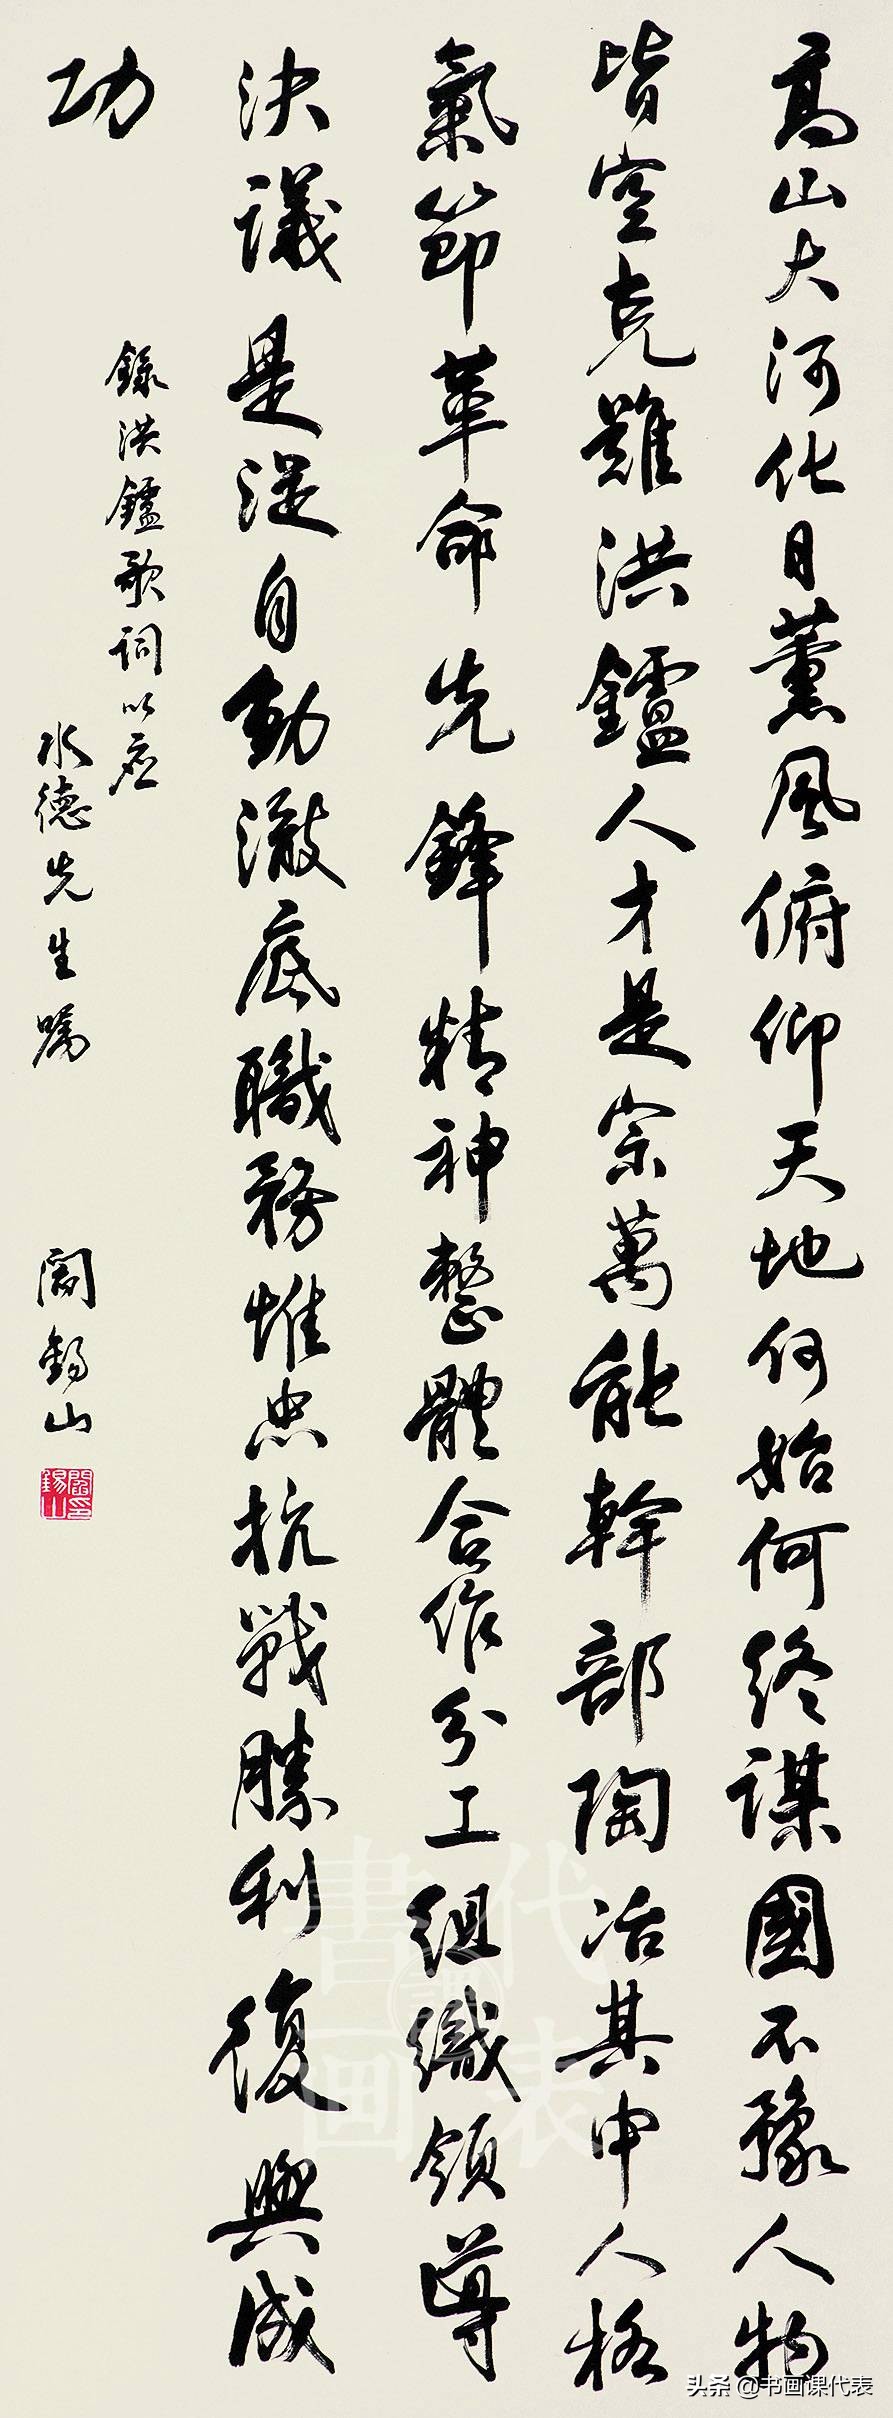 高山大河化日薰風俯仰天地何始何終謀國不豫人物
皆空克難洪鑪人才是宗萬能幹部陶冶其中人格
氣節革命先鋒精神整體合作分工組織領導
決議是從自動澈底職務惟忠抗戰勝利復興成
功
錄洪鑪歌詞以應
水德先生囑
閻錫山
閻錫山印
書画課代表
头条 @书画课代表